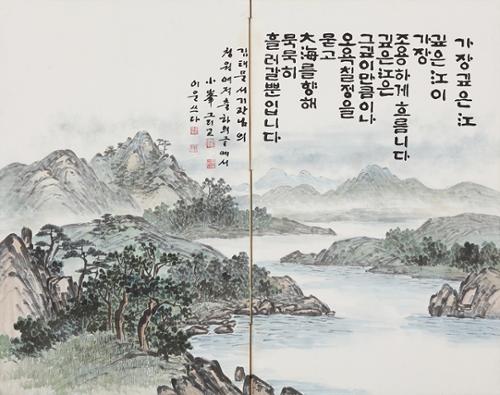 가장 깊은 江
깊은 江이
가장
조용하게 흐릅니다
깊은 江은
그 깊이만큼이나
오욕칠정을
묻고
大海를 향해
묵묵히
흘러갈 뿐입니다
김태문 서기관님의
글에서
小峯 그리고
이운 쓰다